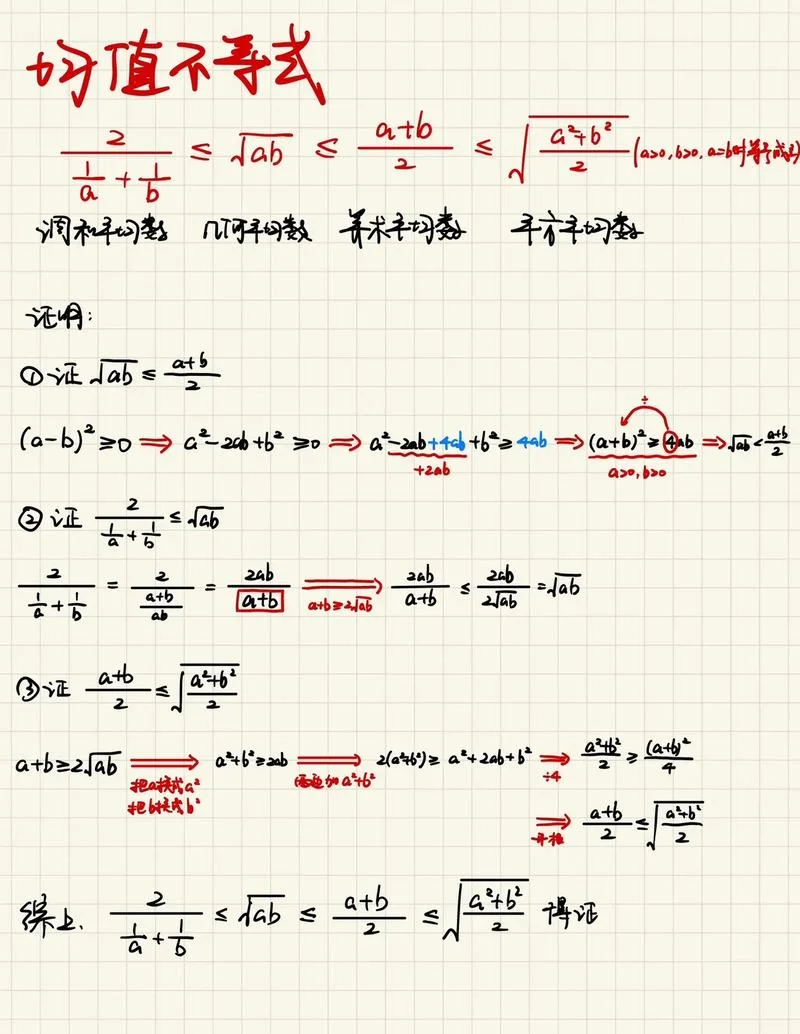 均值不等式
2/(1/a + 1/b) ≤ √ab ≤ (a+b)/2 ≤ √((a²+b²)/2) (a>0, b>0, a=b时等号成立)
调和平均数 几何平均数 算术平均数 平方平均数
证明:
① 证 √ab ≤ (a+b)/2
÷
(a-b)² ≥ 0 ⇒ a²-2ab+b² ≥ 0 ⇒ a²-2ab+4ab+b² ≥ 4ab ⇒ (a+b)² ≥ 4ab ⇒ √ab < (a+b)/2
+2ab a>0, b>0
② 证 2/(1/a + 1/b) ≤ √ab
2/(1/a + 1/b) = 2/((a+b)/ab) = 2ab/(a+b) ⇒ 2ab/(a+b) ≤ 2ab/(2√ab) = √ab
a+b≥2√ab
③ 证 (a+b)/2 ≤ √((a²+b²)/2)
a+b ≥ 2√ab ⇒ a²+b² ≥ 2ab ⇒ 2(a²+b²) ≥ a²+2ab+b² ⇒ (a²+b²)/2 ≥ (a+b)²/4
把a换成a² 两边加a²+b² ÷4
把b换成b²
⇒ (a+b)/2 ≤ √((a²+b²)/2)
开根
综上, 2/(1/a + 1/b) ≤ √ab ≤ (a+b)/2 ≤ √((a²+b²)/2) 得证